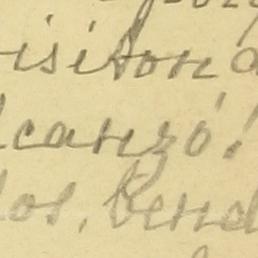 isitona
lcanzó!
los, bend